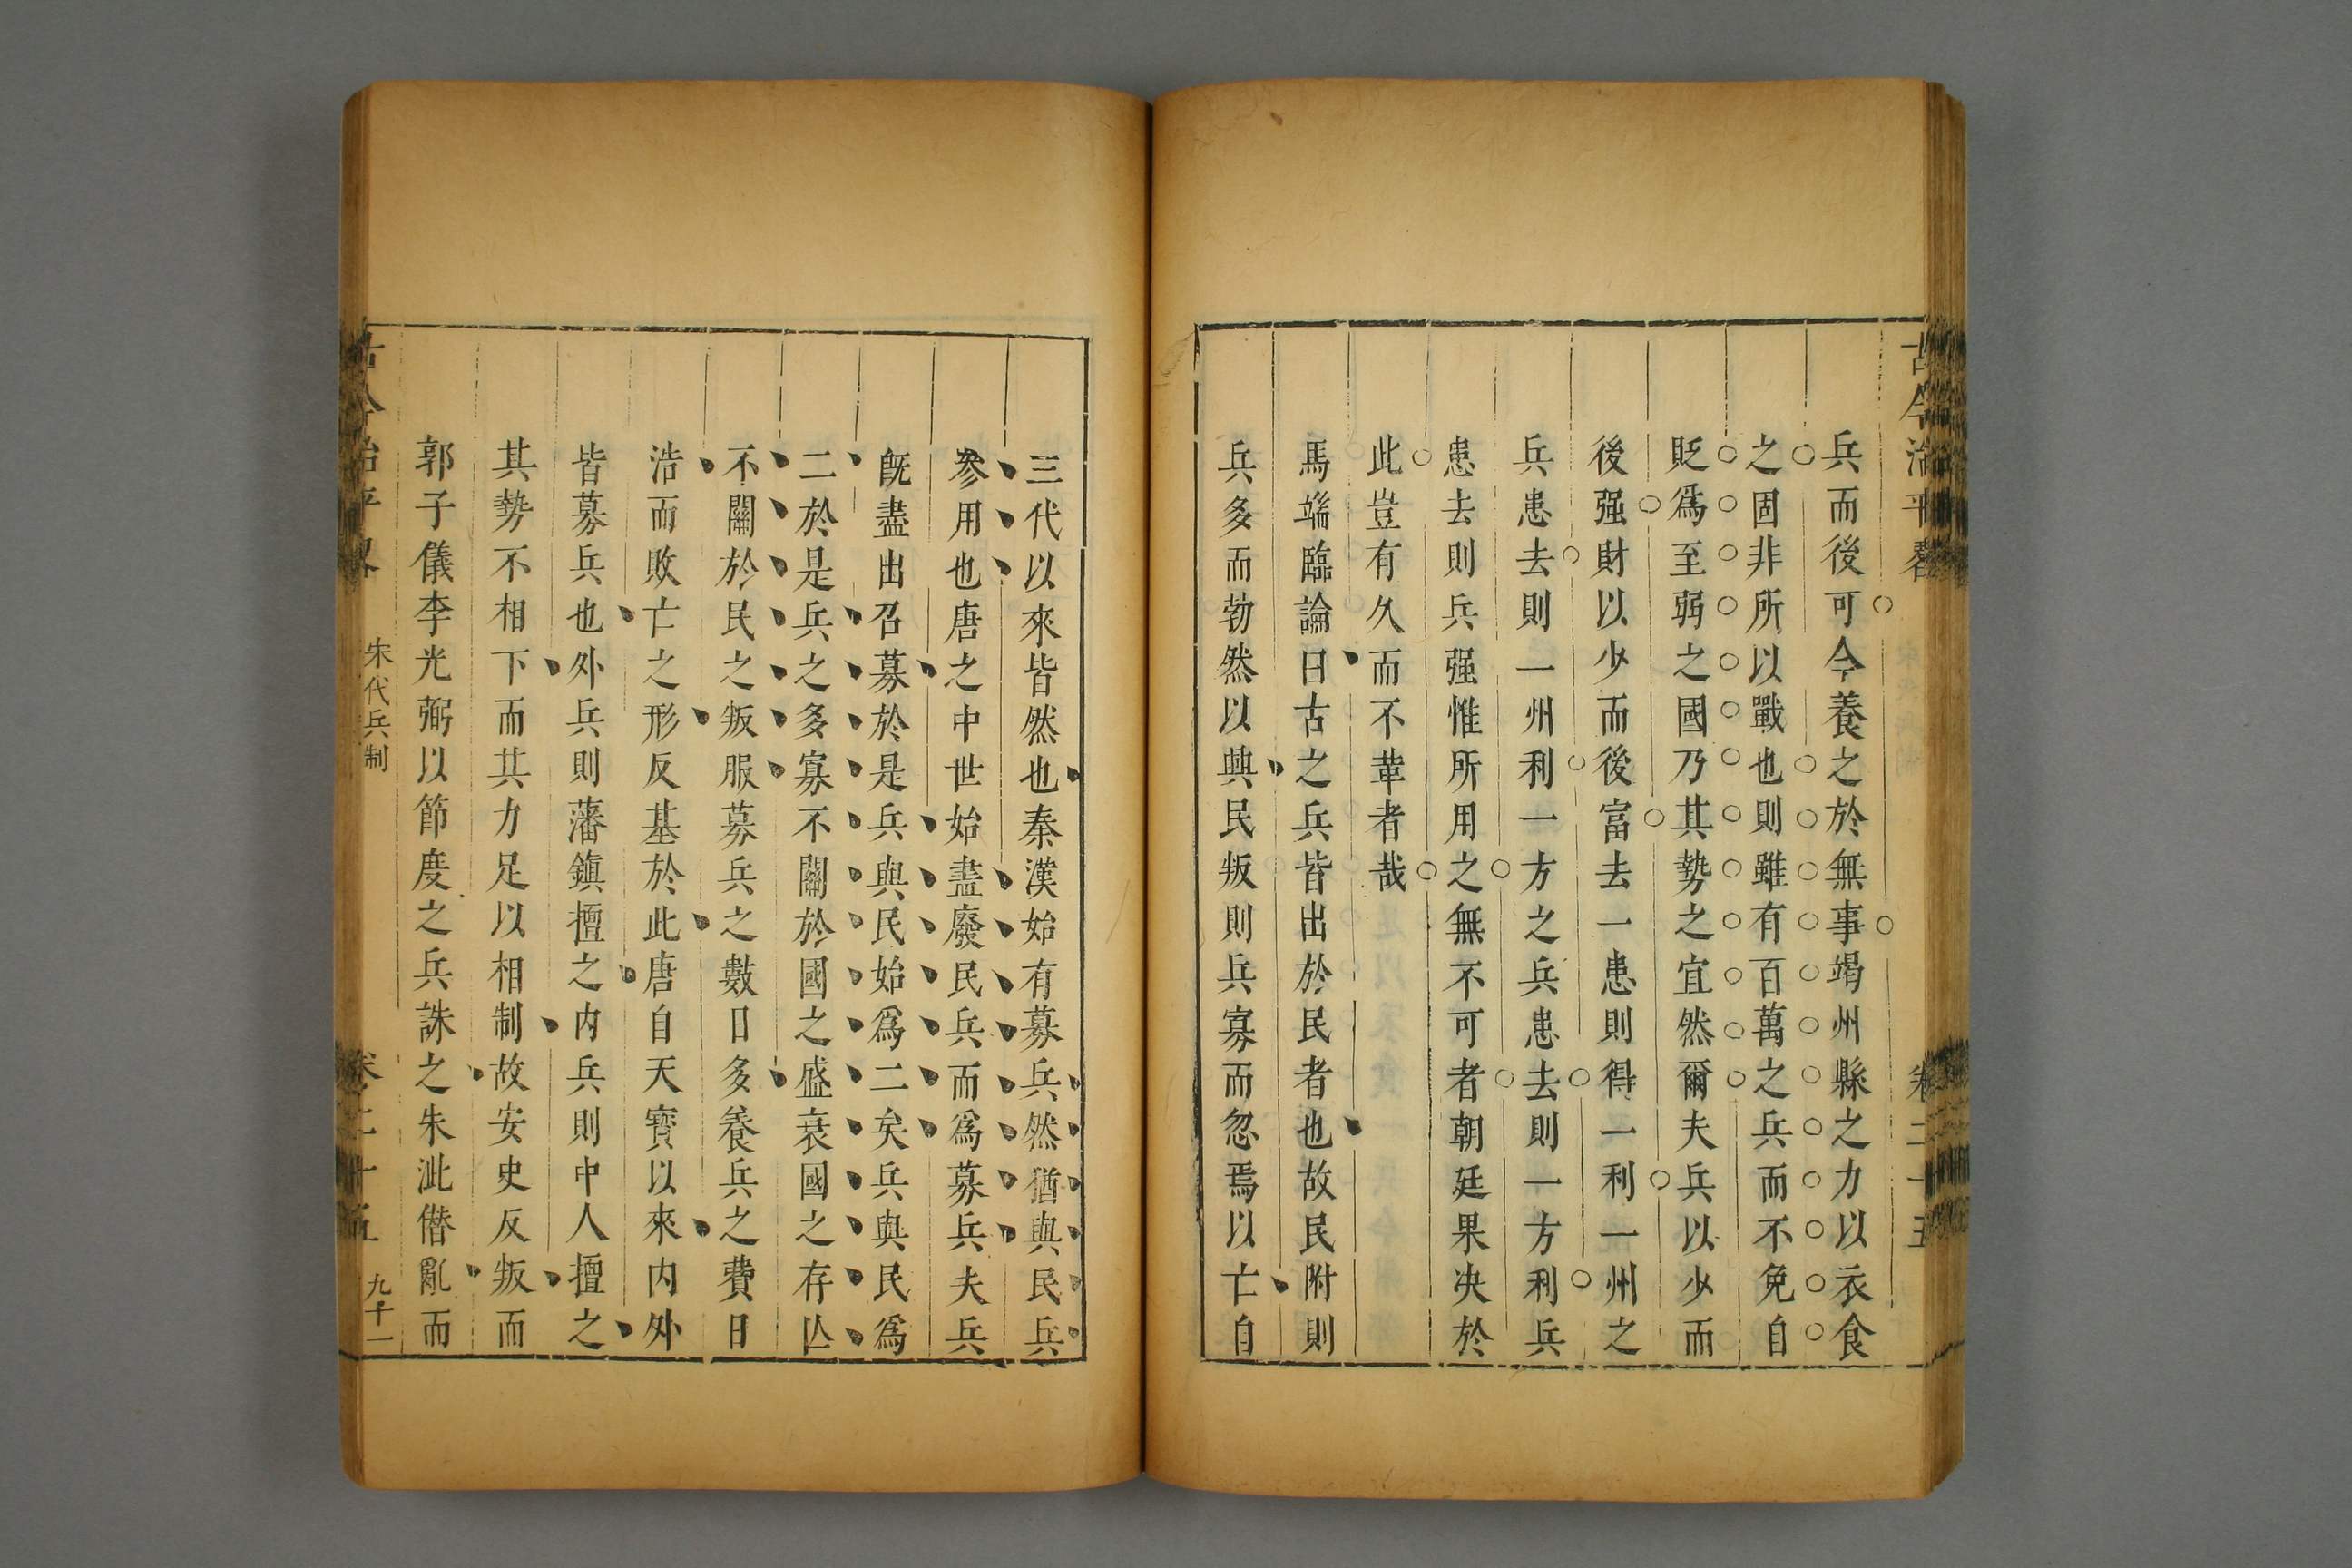 古今治平畧
卷二十五
兵而後可今養之於無事竭州縣之力以衣食
之固非所以戰也則雖有百萬之兵而不免自
貶爲至弱之國乃其勢之宜然爾夫兵以少而
後强財以少而後富去一患則得一利一州之
兵患去則一州利一方之兵患去則一方利兵
患去則兵强惟所用之無不可者朝廷果决於
此豈有久而不革者哉
馬端臨論曰古之兵皆出於民者也故民附則
兵多而勃然以興民叛則兵寡而忽焉以亡自
三代以來皆然也秦漢始有募兵然猶與民兵
參用也唐之中世始盡廢民兵而爲募兵夫兵
旣盡出召募於是兵與民始爲二矣兵與民爲
二於是兵之多寡不關於國之盛衰國之存亾
不關於民之叛服募兵之數日多養兵之費日
浩而敗亡之形反基於此唐自天寳以來内外
皆募兵也外兵則藩鎭擅之内兵則中人擅之
其勢不相下而其力足以相制故安史反叛而
郭子儀李光弼以節度之兵誅之朱泚僭亂而
古今治平畧
宋代兵制
卷二十五
九十一